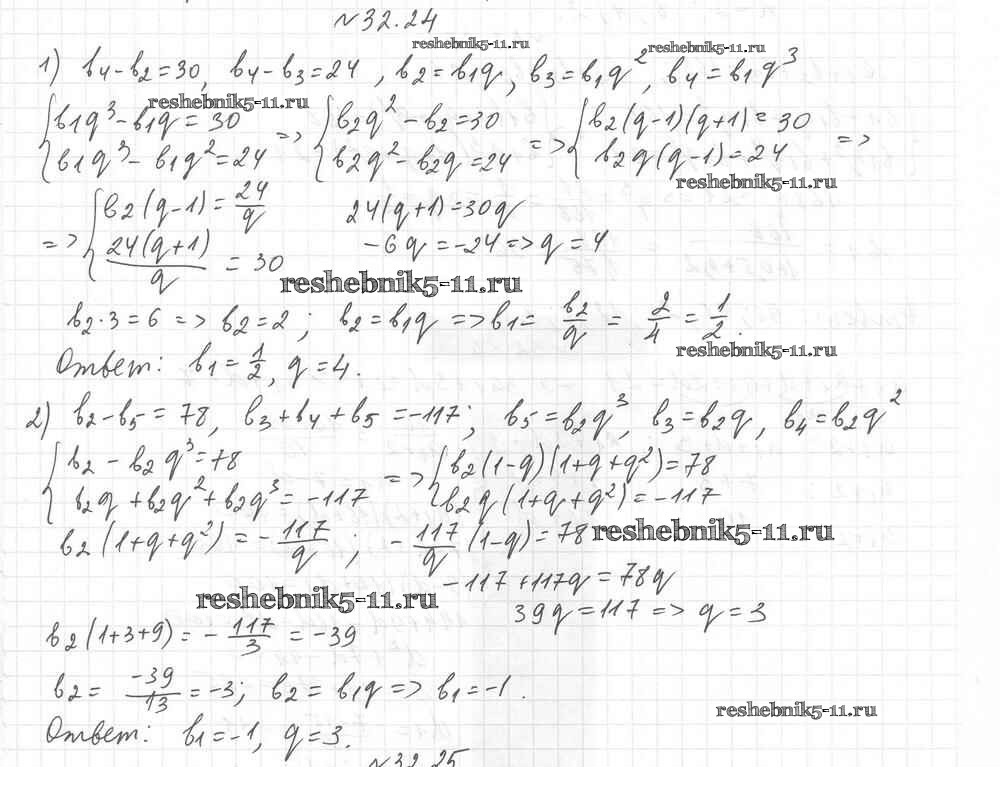 №32.24
reshebnik5-11.ru reshebnik5-11.ru
1) b4-b2=30, b4-b3=24, b2=b1q, b3=b1q², b4=b1q³
reshebnik5-11.ru
{b1q³-b1q=30 => {b2q²-b2=30 => {b2(q-1)(q+1)=30 =>
{b1q³-b1q²=24 {b2q²-b2q=24 {b2q(q-1)=24
reshebnik5-11.ru
=> {b2(q-1)=24/q 24(q+1)=30q
{24(q+1)/q=30 -6q=-24=>q=4
reshebnik5-11.ru
b2·3=6 => b2=2; b2=b1q =>b1=b2/q=2/4=1/2.
reshebnik5-11.ru
Ответ: b1=1/2, q=4.
2) b2-b5=78, b3+b4+b5=-117; b5=b2q³, b3=b2q, b4=b2q²
{b2-b2q³=78 => {b2(1-q)(1+q+q²)=78
{b2q+b2q²+b2q³=-117 {b2q(1+q+q²)=-117
b2(1+q+q²)=-117/q; -117/q(1-q)=78
reshebnik5-11.ru
-117+117q=78q
reshebnik5-11.ru
39q=117=>q=3
b2(1+3+9)=-117/3=-39
b2=-39/13=-3; b2=b1q=>b1=-1.
reshebnik5-11.ru
Ответ: b1=-1, q=3.
№32.25